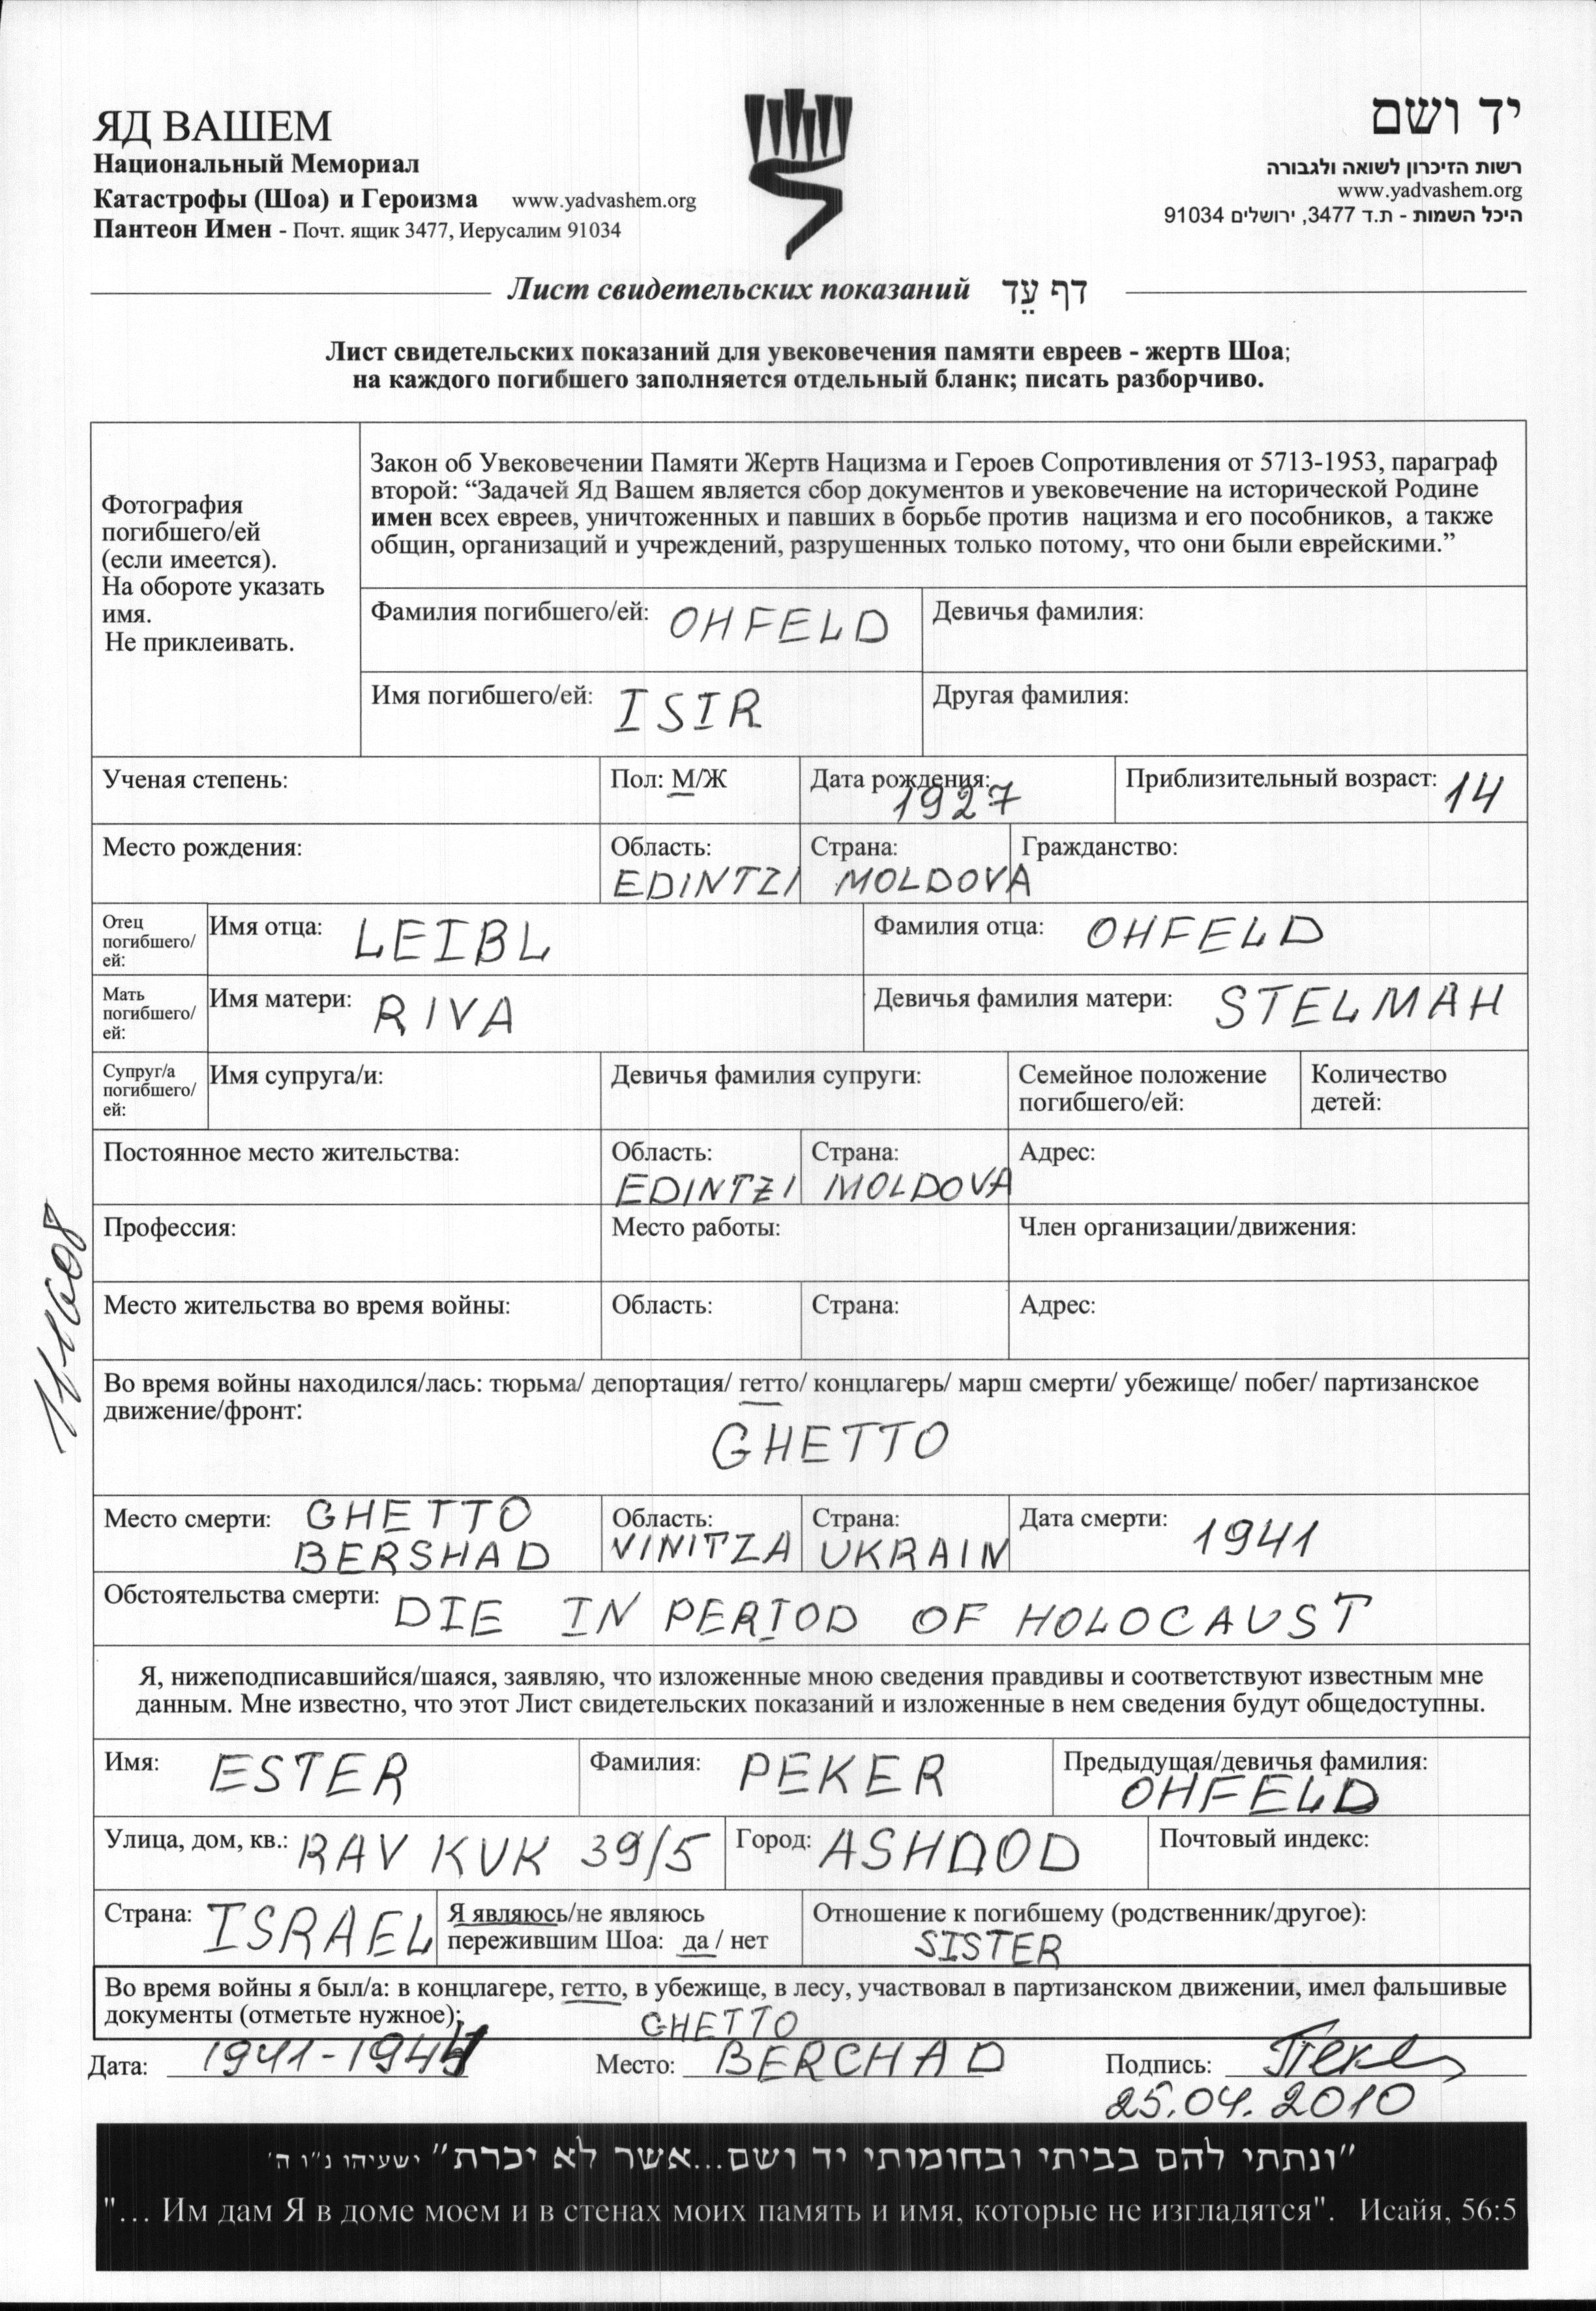 ЯД ВАШЕМ
Национальный Мемориал
Катастрофы (Шоа) и Героизма www.yadvashem.org
Пантеон Имен - Почт. ящик 3477, Иерусалим 91034
יד ושם
רשות הזיכרון לשואה ולגבורה
www.yadvashem.org
היכל השמות - ת.ד 3477, ירושלים 91034
Лист свидетельских показаний דף עֵד
Лист свидетельских показаний для увековечения памяти евреев - жертв Шоа;
на каждого погибшего заполняется отдельный бланк; писать разборчиво.
Фотография
погибшего/ей
(если имеется).
На обороте указать
имя.
Не приклеивать.
Закон об Увековечении Памяти Жертв Нацизма и Героев Сопротивления от 5713-1953, параграф
второй: “Задачей Яд Вашем является сбор документов и увековечение на исторической Родине
имен всех евреев, уничтоженных и павших в борьбе против нацизма и его пособников, а также
общин, организаций и учреждений, разрушенных только потому, что они были еврейскими.”
Фамилия погибшего/ей: OHFELD Девичья фамилия:
Имя погибшего/ей: ISIR Другая фамилия:
Ученая степень: Пол: М/Ж Дата рождения: 1927 Приблизительный возраст: 14
Место рождения: Область: EDINTZI Страна: MOLDOVA Гражданство:
Отец погибшего/ей: Имя отца: LEIBL Фамилия отца: OHFELD
Мать погибшего/ей: Имя матери: RIVA Девичья фамилия матери: STELMAH
Супруг/а погибшего/ей: Имя супруга/и: Девичья фамилия супруги: Семейное положение погибшего/ей: Количество детей:
Постоянное место жительства: Область: EDINTZI Страна: MOLDOVA Адрес:
Профессия: Место работы: Член организации/движения:
Место жительства во время войны: Область: Страна: Адрес:
Во время войны находился/лась: тюрьма/ депортация/ гетто/ концлагерь/ марш смерти/ убежище/ побег/ партизанское
движение/фронт:
GHETTO
Место смерти: GHETTO BERSHAD Область: VINITZA Страна: UKRAIN Дата смерти: 1941
Обстоятельства смерти: DIE IN PERIOD OF HOLOCAUST
Я, нижеподписавшийся/шаяся, заявляю, что изложенные мною сведения правдивы и соответствуют известным мне
данным. Мне известно, что этот Лист свидетельских показаний и изложенные в нем сведения будут общедоступны.
Имя: ESTER Фамилия: PEKER Предыдущая/девичья фамилия: OHFELD
Улица, дом, кв.: RAV KUK 39/5 Город: ASHDOD Почтовый индекс:
Страна: ISRAEL Я являюсь/не являюсь пережившим Шоа: да / нет Отношение к погибшему (родственник/другое): SISTER
Во время войны я был/а: в концлагере, гетто, в убежище, в лесу, участвовал в партизанском движении, имел фальшивые
документы (отметьте нужное): GHETTO
Дата: 1941-1944 Место: BERCHAD Подпись:
25.04.2010
”ונתתי להם בביתי ובחומותי יד ושם...אשר לא יכרת” ישעיהו נ”ו ה'
"... Им дам Я в доме моем и в стенах моих память и имя, которые не изгладятся". Исайя, 56:5